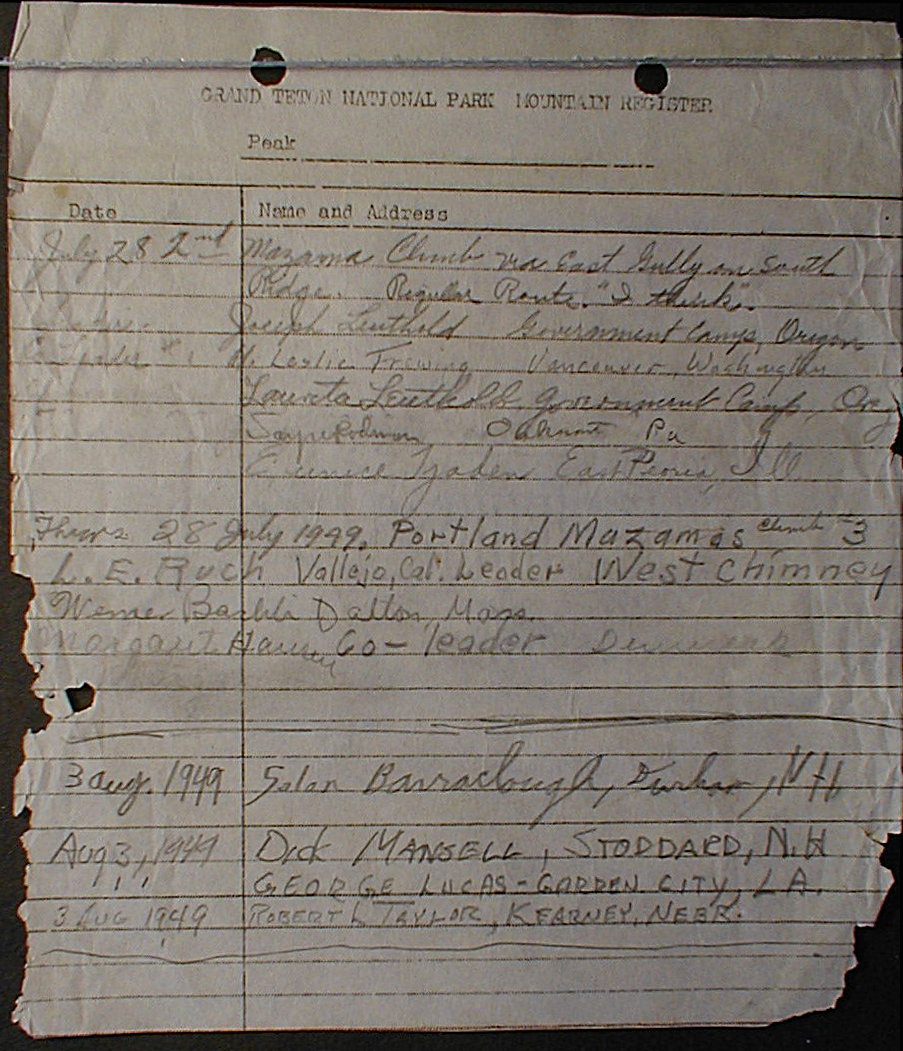 GRAND TETON NATIONAL PARK MOUNTAIN REGISTER
Peak
Date Name and Address
July 28 2nd Mazama Climb via East Gully on South
Ridge. Regular Route. "I think".
Joseph Leuthold Government Camp, Oregon
Leader #1 H. Leslie Trewing Vancouver, Washington
Laureta Leuthold Government Camp, Ore.
Oakmont Pa
Eunice East Peoria, Ill.
Thurs 28 July 1949. Portland Mazamas Climb #3
L. E. Ruch Vallejo, Cal. Leader West Chimney
Werner Dalton, Mass.
Margaret Co-leader
3 Aug. 1949 Solon Barraclough, Durham, N H
Aug 3, 1949 Dick MANSELL, STODDARD, N.H
" " GEORGE LUCAS - GARDEN CITY, LA.
3 AUG 1949 ROBERT L TAYLOR, KEARNEY, NEBR.